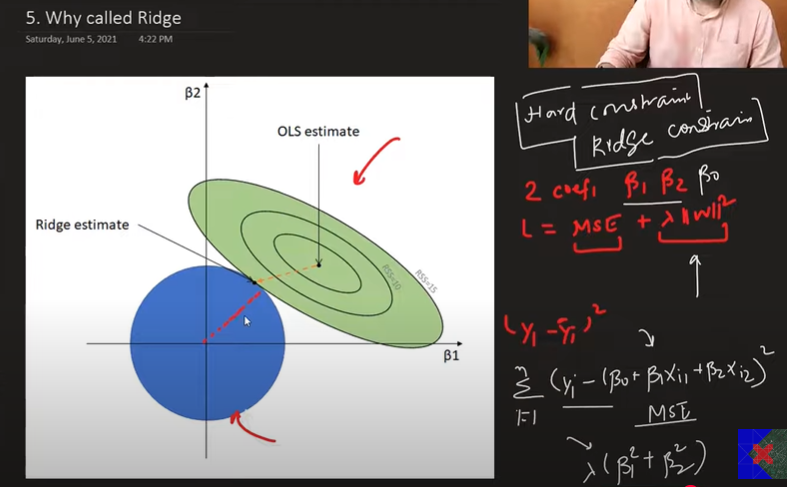 5. Why called Ridge
Saturday, June 5, 2021 4:22 PM
β2
OLS estimate
Ridge estimate
RSS=10
RSS=15
β1
Hard constraint
Ridge constrain
2 coefi β1 β2 β0
L = MSE + λ ||W||²
(yi - ŷi)²
n
Σ (yi - (β0 + β1xi1 + β2xi2)²
i=1
MSE
λ(β1² + β2²)